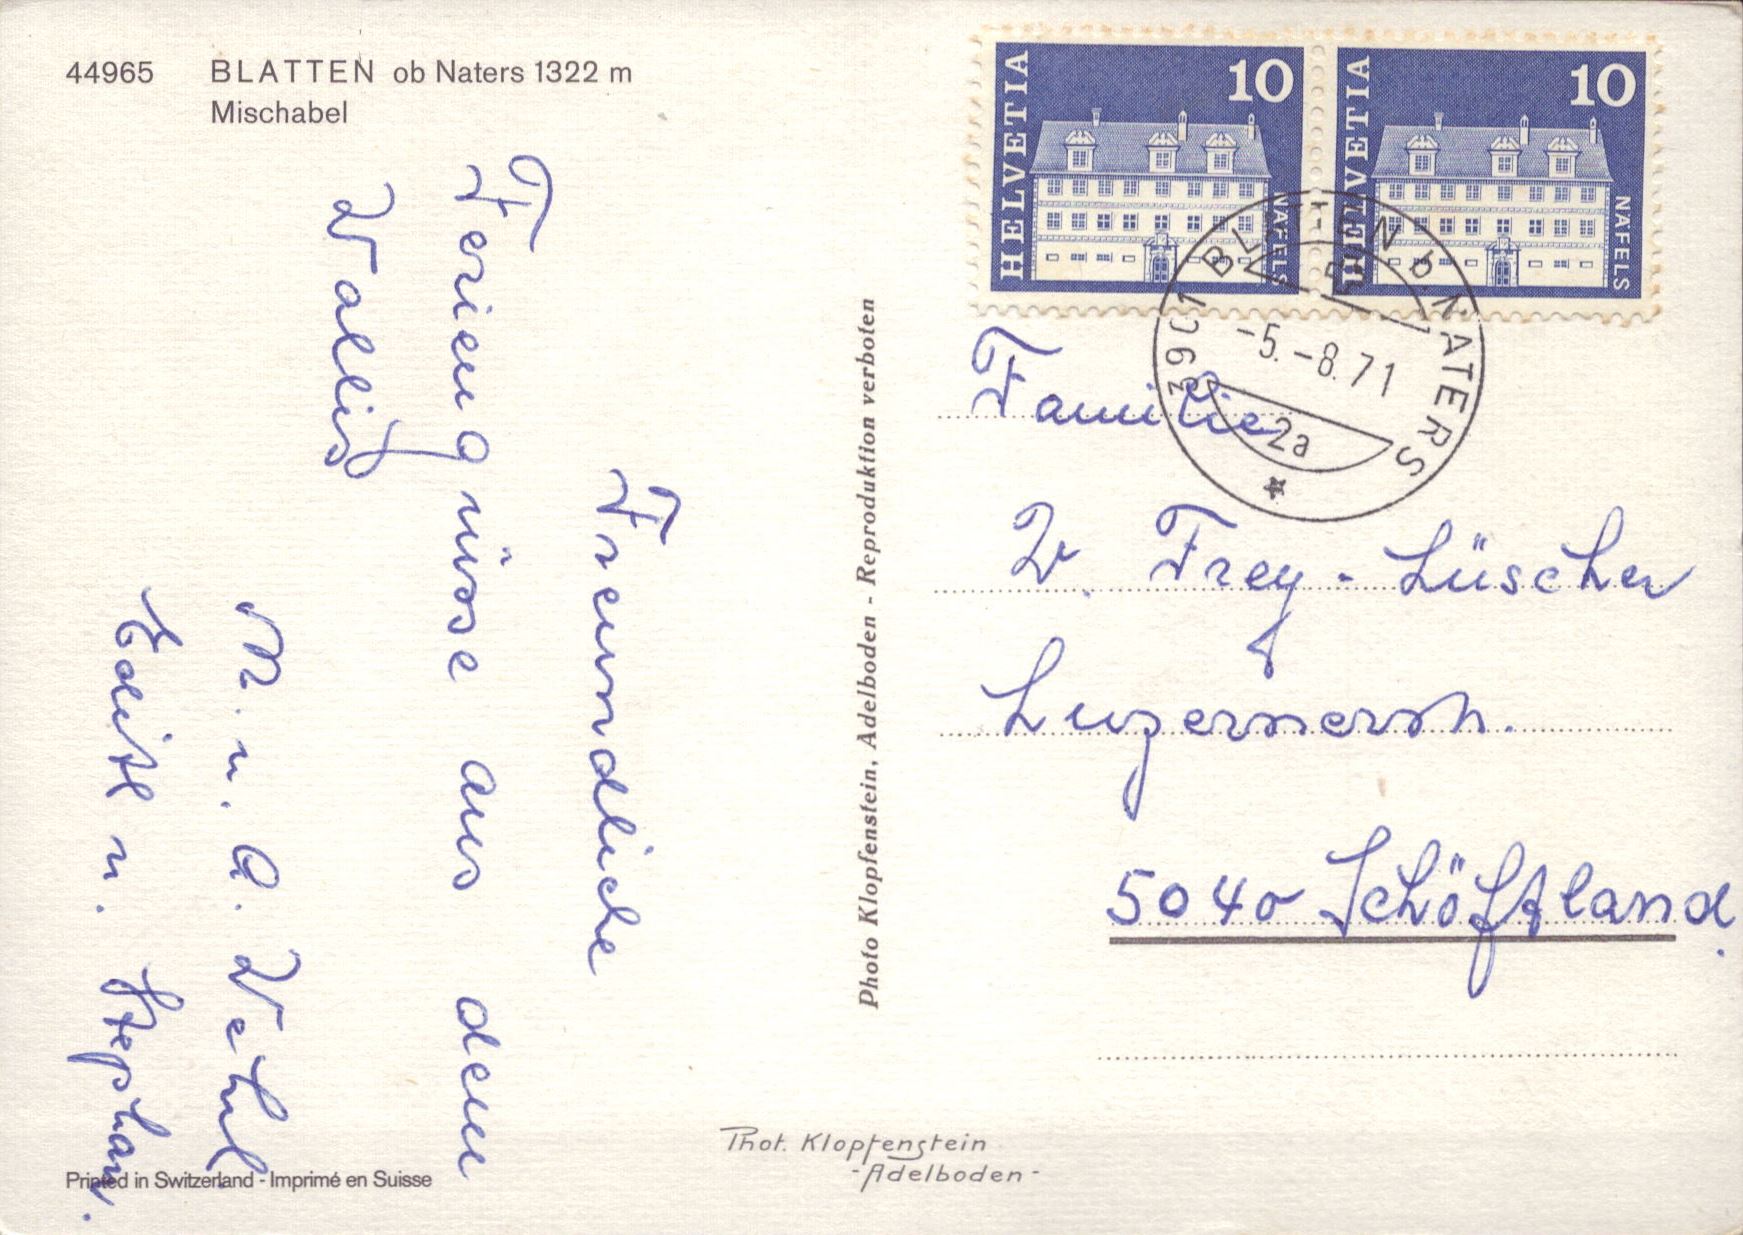 44965 BLATTEN ob Naters 1322 m
Mischabel
HELVETIA 10 NÄFELS
HELVETIA 10 NÄFELS
3901 BLATTEN b. NATERS
-5.-8.71
2a
Freundliche
Feriengrüsse aus dem
Wallis
M. u. A. Wehrl
Edith u. Stephan.
Photo Klopfenstein, Adelboden - Reproduktion verboten
Familie
W. Frey-Lüscher
Luzernerstr.
5040 Schöftland.
Phot. Klopfenstein
- Adelboden -
Printed in Switzerland - Imprimé en Suisse